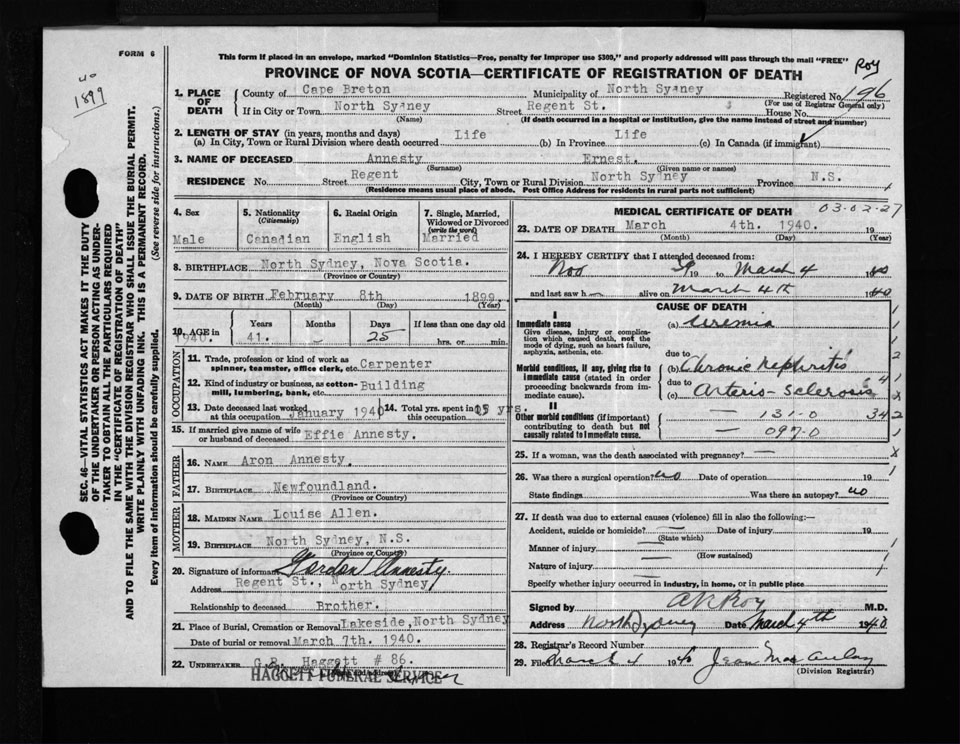 FORM 6
This form if placed in an envelope, marked "Dominion Statistics—Free, penalty for improper use $300," and properly addressed will pass through the mail "FREE"
Roy
1899
PROVINCE OF NOVA SCOTIA—CERTIFICATE OF REGISTRATION OF DEATH
1. PLACE OF DEATH County of Cape Breton Municipality of North Sydney Registered No. 196
(For use of Registrar General only)
If in City or Town North Sydney Street Regent St. House No.
(Name) (If death occurred in a hospital or institution, give the name instead of street and number)
2. LENGTH OF STAY (in years, months and days) Life Life
(a) In City, Town or Rural Division where death occurred (b) In Province (c) In Canada (if immigrant)
3. NAME OF DECEASED Annesty Ernest.
(Surname) (Given name or names)
RESIDENCE No. Street Regent City, Town or Rural Division North Sydney Province N.S.
(Residence means usual place of abode. Post Office Address for residents in rural parts not sufficient)
4. Sex 5. Nationality (Citizenship) 6. Racial Origin 7. Single, Married, Widowed or Divorced (write the word)
Male Canadian English Married
8. BIRTHPLACE North Sydney, Nova Scotia.
(Province or Country)
9. DATE OF BIRTH February 8th 1899.
(Month) (Day) (Year)
10. AGE in Years Months Days If less than one day old
1940. 41. 25 hrs. or min.
OCCUPATION
11. Trade, profession or kind of work as spinner, teamster, office clerk, etc. Carpenter
12. Kind of industry or business, as cotton-mill, lumbering, bank, etc. Building
13. Date deceased last worked at this occupation January 1940 14. Total yrs. spent in this occupation 15 yrs.
15. If married give name of wife or husband of deceased Effie Annesty.
FATHER
16. NAME Aron Annesty.
17. BIRTHPLACE Newfoundland.
(Province or Country)
MOTHER
18. MAIDEN NAME Louise Allen.
19. BIRTHPLACE North Sydney, N.S.
(Province or Country)
20. Signature of informant Gordon Annesty.
Address Regent St., North Sydney,
Relationship to deceased Brother.
21. Place of Burial, Cremation or Removal Lakeside, North Sydney
Date of burial or removal March 7th. 1940.
22. UNDERTAKER G.B. Haggett # 86.
HAGGETT FUNERAL SERVICE
MEDICAL CERTIFICATE OF DEATH 03-02-27
23. DATE OF DEATH March 4th. 1940. 19
(Month) (Day) (Year)
24. I HEREBY CERTIFY that I attended deceased from:
Nov 19 to March 4 1940
and last saw h alive on March 4th 1940
CAUSE OF DEATH
I
Immediate cause (a) Uremia
Give disease, injury or complication which caused death, not the mode of dying, such as heart failure, asphyxia, asthenia, etc.
due to
Morbid conditions, if any, giving rise to immediate cause (stated in order proceeding backwards from immediate cause). (b) Chronic nephritis
due to
(c) Arterio-sclerosis
II
Other morbid conditions (if important) contributing to death but not causally related to immediate cause.
— 131-0 34 2
— 097-0
25. If a woman, was the death associated with pregnancy? —
26. Was there a surgical operation? no Date of operation 19
State findings Was there an autopsy? no
27. If death was due to external causes (violence) fill in also the following:—
Accident, suicide or homicide? — Date of injury 19
(State which)
Manner of injury —
(How sustained)
Nature of injury —
Specify whether injury occurred in industry, in home, or in public place
Signed by A R Roy M.D.
Address North Sydney Date March 4th 1940
28. Registrar's Record Number
29. Filed March 4 1940 Jean MacAulay
(Division Registrar)
SEC. 46—VITAL STATISTICS ACT MAKES IT THE DUTY
OF THE UNDERTAKER OR PERSON ACTING AS UNDER-
TAKER TO OBTAIN ALL THE PARTICULARS REQUIRED
IN THE "CERTIFICATE OF REGISTRATION OF DEATH"
AND TO FILE THE SAME WITH THE DIVISION REGISTRAR WHO SHALL ISSUE THE BURIAL PERMIT.
WRITE PLAINLY WITH UNFADING INK. THIS IS A PERMANENT RECORD.
Every item of information should be carefully supplied. (See reverse side for instructions.)